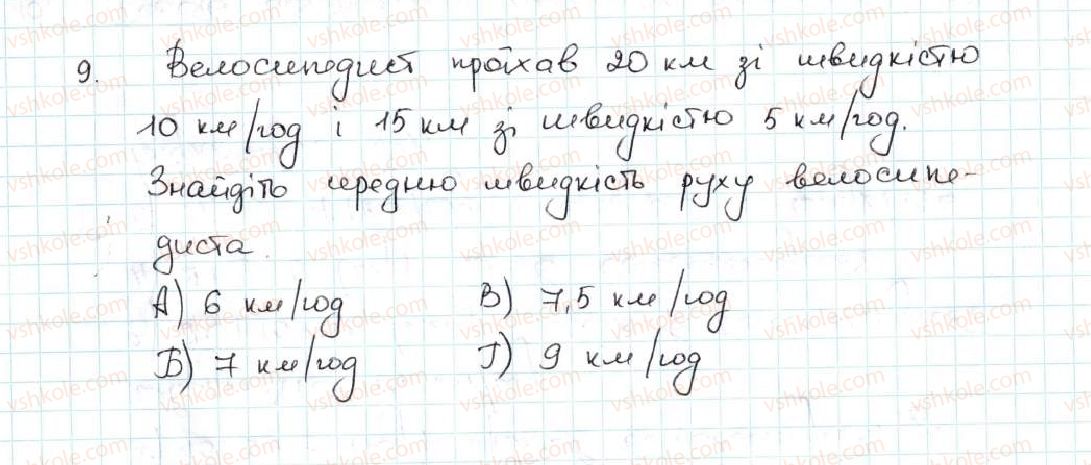 9. Велосипедист проїхав 20 км зі швидкістю
10 км/год і 15 км зі швидкістю 5 км/год.
Знайдіть середню швидкість руху велосипе-
диста.
А) 6 км/год В) 7,5 км/год
Б) 7 км/год Г) 9 км/год